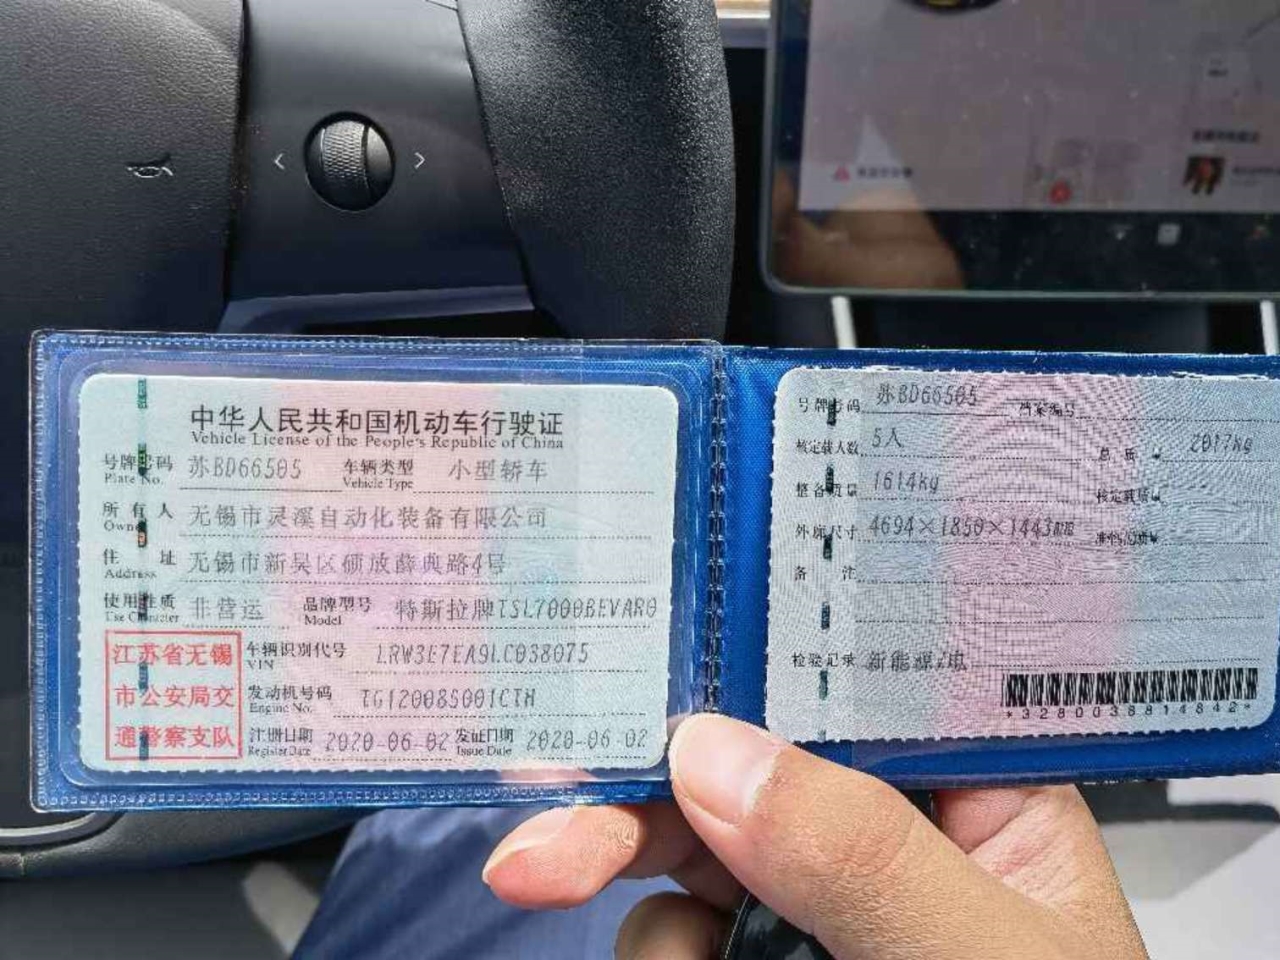 中华人民共和国机动车行驶证
Vehicle License of the People's Republic of China
号牌号码 苏BD66505 车辆类型 小型轿车
Plate No. Vehicle Type
所有人 无锡市灵溪自动化装备有限公司
Owner
住址 无锡市新吴区硕放薛典路4号
Address
使用性质 非营运 品牌型号 特斯拉牌TSL7000BEVAR0
Use Character Model
江苏省无锡
市公安局交
通警察支队
车辆识别代号 LRW3E7EA9LC038075
VIN
发动机号码 TG120085001CTH
Engine No.
注册日期 2020-06-02 发证日期 2020-06-02
Register Date Issue Date
号牌号码 苏BD66505 档案编号
核定载人数 5人 总质量 2017kg
整备质量 1614kg 核定载质量
外廓尺寸 4694×1850×1443mm 准牵引总质量
备注
检验记录 新能源/电
*3280038814842*